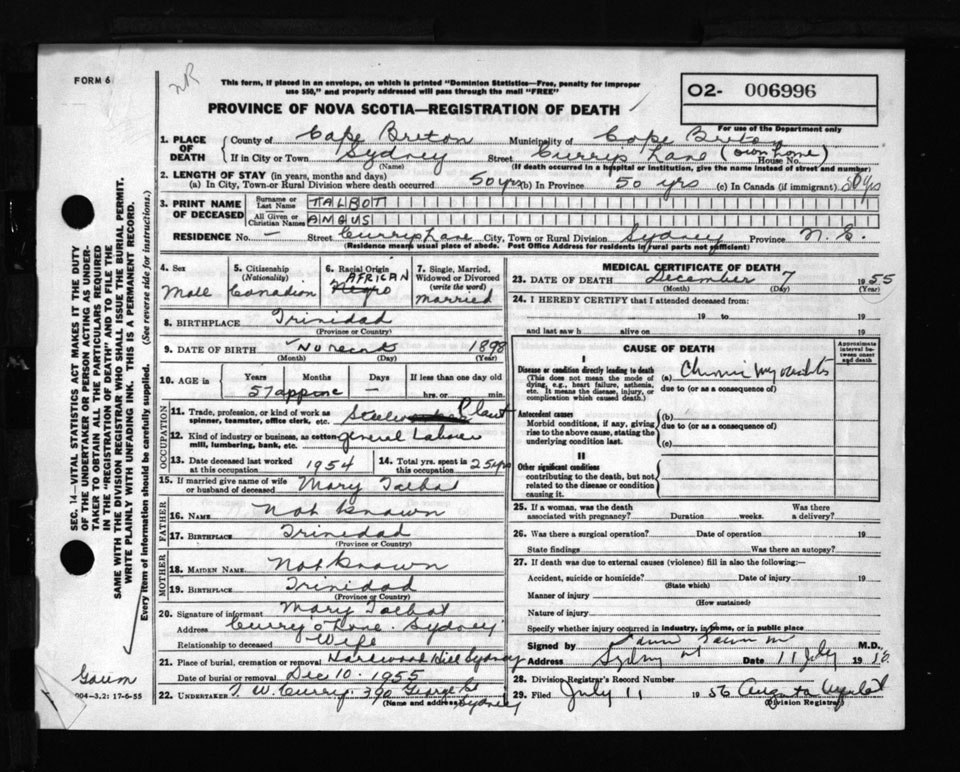 FORM 6
NR
This form, if placed in an envelope, on which is printed "Dominion Statistics—Free, penalty for improper
use $50," and properly addressed will pass through the mail "FREE"
PROVINCE OF NOVA SCOTIA—REGISTRATION OF DEATH
O2- 006996
For use of the Department only
1. PLACE OF DEATH
County of Cape Breton Municipality of Cape Breton
If in City or Town Sydney Street Currys Lane (own home) House No.
(Name) (If death occurred in a hospital or institution, give the name instead of street and number)
2. LENGTH OF STAY (in years, months and days)
(a) In City, Town or Rural Division where death occurred 50 yrs (b) In Province 50 yrs (c) In Canada (if immigrant) 50 yrs
3. PRINT NAME OF DECEASED
Surname or Last Name TALBOT
All Given or Christian Names ANGUS
RESIDENCE No. — Street Currys Lane City, Town or Rural Division Sydney Province N.S.
(Residence means usual place of abode. Post Office Address for residents in rural parts not sufficient)
4. Sex
Male
5. Citizenship
(Nationality)
Canadian
6. Racial Origin
AFRICAN
Negro
7. Single, Married, Widowed or Divorced
(write the word)
Married
8. BIRTHPLACE Trinidad
(Province or Country)
9. DATE OF BIRTH No record 1898
(Month) (Day) (Year)
10. AGE in Years Months Days If less than one day old
57 approx — hrs. or min.
OCCUPATION
11. Trade, profession, or kind of work as
spinner, teamster, office clerk, etc. Steel Plant
12. Kind of industry or business, as cotton
mill, lumbering, bank, etc. General Laborer
13. Date deceased last worked
at this occupation 1954
14. Total yrs. spent in
this occupation 25 yrs
15. If married give name of wife
or husband of deceased Mary Talbot
FATHER
16. NAME Not Known
17. BIRTHPLACE Trinidad
(Province or Country)
MOTHER
18. MAIDEN NAME Not Known
19. BIRTHPLACE Trinidad
(Province or Country)
20. Signature of informant Mary Talbot
Address Currys Lane Sydney
Relationship to deceased Wife
21. Place of burial, cremation or removal Hardwood Hill Sydney
Date of burial or removal Dec 10. 1955
22. UNDERTAKER T. W. Curry. 390 George St
(Name and address) Sydney
MEDICAL CERTIFICATE OF DEATH
23. DATE OF DEATH December 7 1955
(Month) (Day) (Year)
24. I HEREBY CERTIFY that I attended deceased from:
19 to 19
and last saw h alive on 19
CAUSE OF DEATH
Approximate interval between onset and death
I
Disease or condition directly leading to death
(This does not mean the mode of
dying, e.g., heart failure, asthenia,
etc. It means the disease, injury, or
complication which caused death.)
(a) Chronic myocarditis
due to (or as a consequence of)
Antecedent causes
Morbid conditions, if any, giving
rise to the above cause, stating the
underlying condition last.
(b)
due to (or as a consequence of)
(c)
II
Other significant conditions
contributing to the death, but not
related to the disease or condition
causing it.
25. If a woman, was the death
associated with pregnancy? Duration weeks. Was there a delivery?
26. Was there a surgical operation? Date of operation 19
State findings Was there an autopsy?
27. If death was due to external causes (violence) fill in also the following:—
Accident, suicide or homicide? Date of injury 19
(State which)
Manner of injury
(How sustained)
Nature of injury
Specify whether injury occurred in industry, in home, or in public place
Signed by M.D.
Address Sydney NS Date 11 July 19
28. Division Registrar's Record Number
29. Filed July 11 1956 Augusta
(Division Registrar)
SEC. 14—VITAL STATISTICS ACT MAKES IT THE DUTY
OF THE UNDERTAKER OR PERSON ACTING AS UNDER-
TAKER TO OBTAIN ALL THE PARTICULARS REQUIRED
IN THE "REGISTRATION OF DEATH" AND TO FILE THE
SAME WITH THE DIVISION REGISTRAR WHO SHALL ISSUE THE BURIAL PERMIT.
WRITE PLAINLY WITH UNFADING INK. THIS IS A PERMANENT RECORD.
Every item of information should be carefully supplied. (See reverse side for instructions.)
004-3.2: 17-6-55